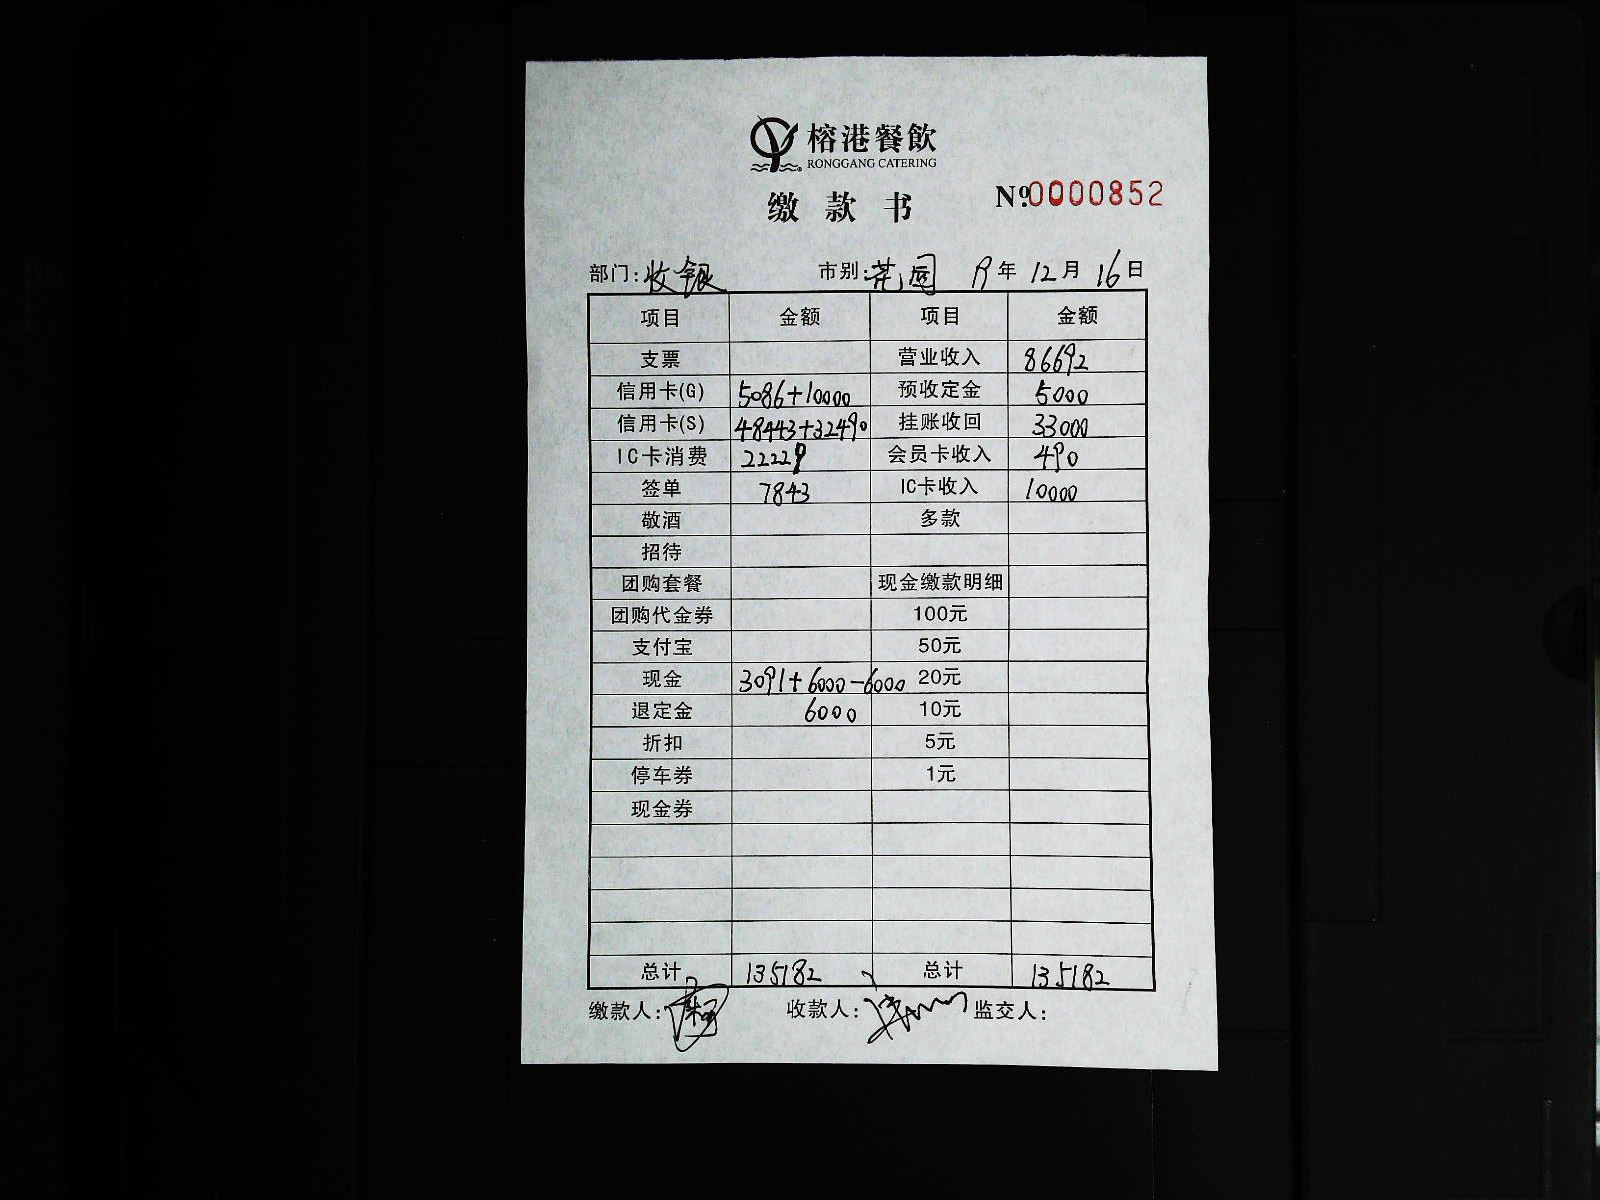 榕港餐飲
RONGGANG CATERING
缴款书
№0000852
部门:收银 市别:花园 19年12月16日
项目 金额 项目 金额
支票 营业收入 86692
信用卡(G) 5086+10000 预收定金 5000
信用卡(S) 48443+32490 挂账收回 33000
IC卡消费 22229 会员卡收入 490
签单 7843 IC卡收入 10000
敬酒 多款
招待
团购套餐 现金缴款明细
团购代金券 100元
支付宝 50元
现金 3091+6000-6000 20元
退定金 6000 10元
折扣 5元
停车券 1元
现金券
总计 135182 总计 135182
缴款人: 收款人: 监交人: